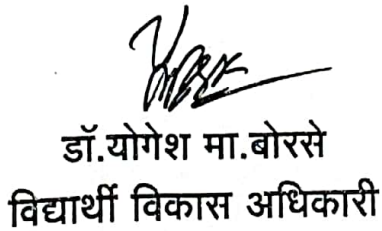 डॉ.योगेश मा.बोरसे
विद्यार्थी विकास अधिकारी